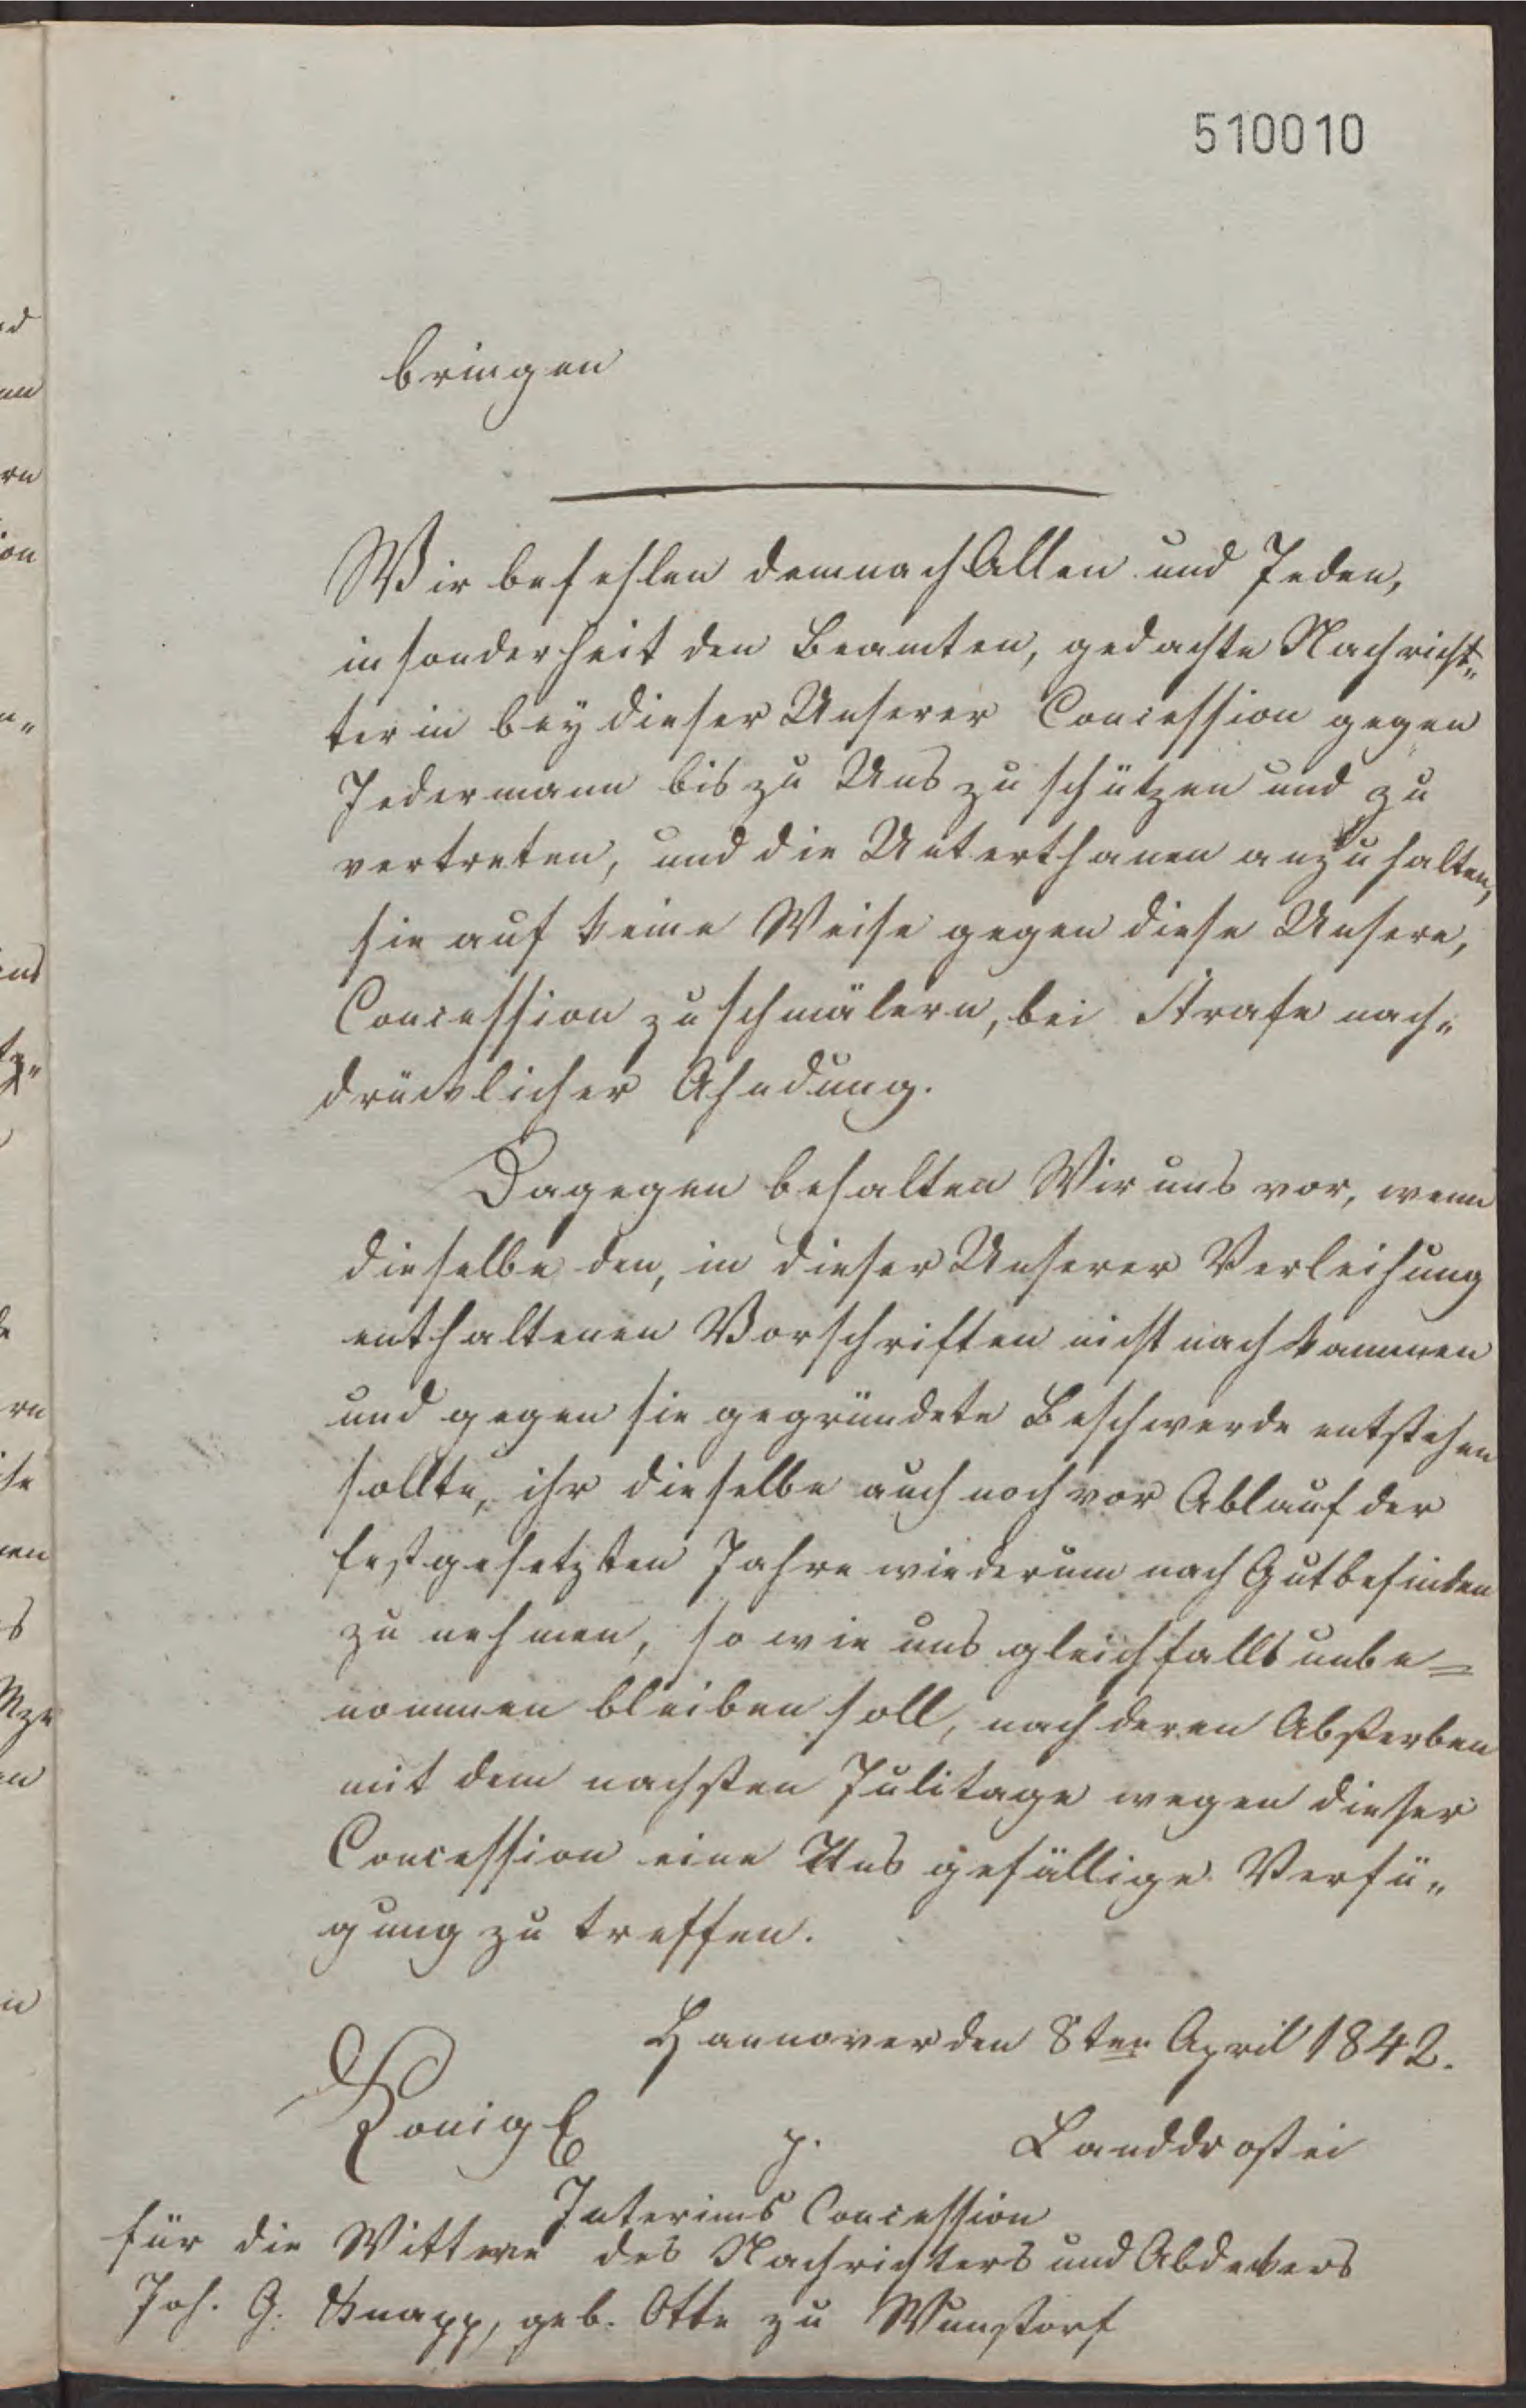 510010
bringen
Wir befehlen demnach Allen und Jeden,
insonderheit den Beamten, gedachte Nachrich„
terin bey dieser Unserer Concession gegen
Jedermann bis zu Uns zu schützen und zu
vertreten, und die Unterthanen anzuhalten,
sie auf keine Weise gegen diese Unsere,
Concession zu schmälern, bei Strafe nach„
drücklicher Ahndung.
Dagegen behalten Wir uns vor, wenn
dieselbe den, in dieser Unserer Verleihung
enthaltenen Vorschriften nicht nachkommen
und gegen sie gegründete Beschwerde entstehen
sollte, ihr dieselbe auch noch vor Ablauf der
festgesetzten Jahre wiederum nach Gutbefinden
zu nehmen, so wie uns gleichfalls unbe=
nommen bleiben soll, nach deren Absterben
mit dem nachsten Julitage wegen dieser
Concession eine Uns gefällige Verfü„
gung zu treffen.
Hannover den 8ten April 1842.
König p. Landdrostei
Interims Concession
für die Wittwe des Nachrichters und Abdeckers
Joh. G. Knapp, geb. Otte zu Wunstorf